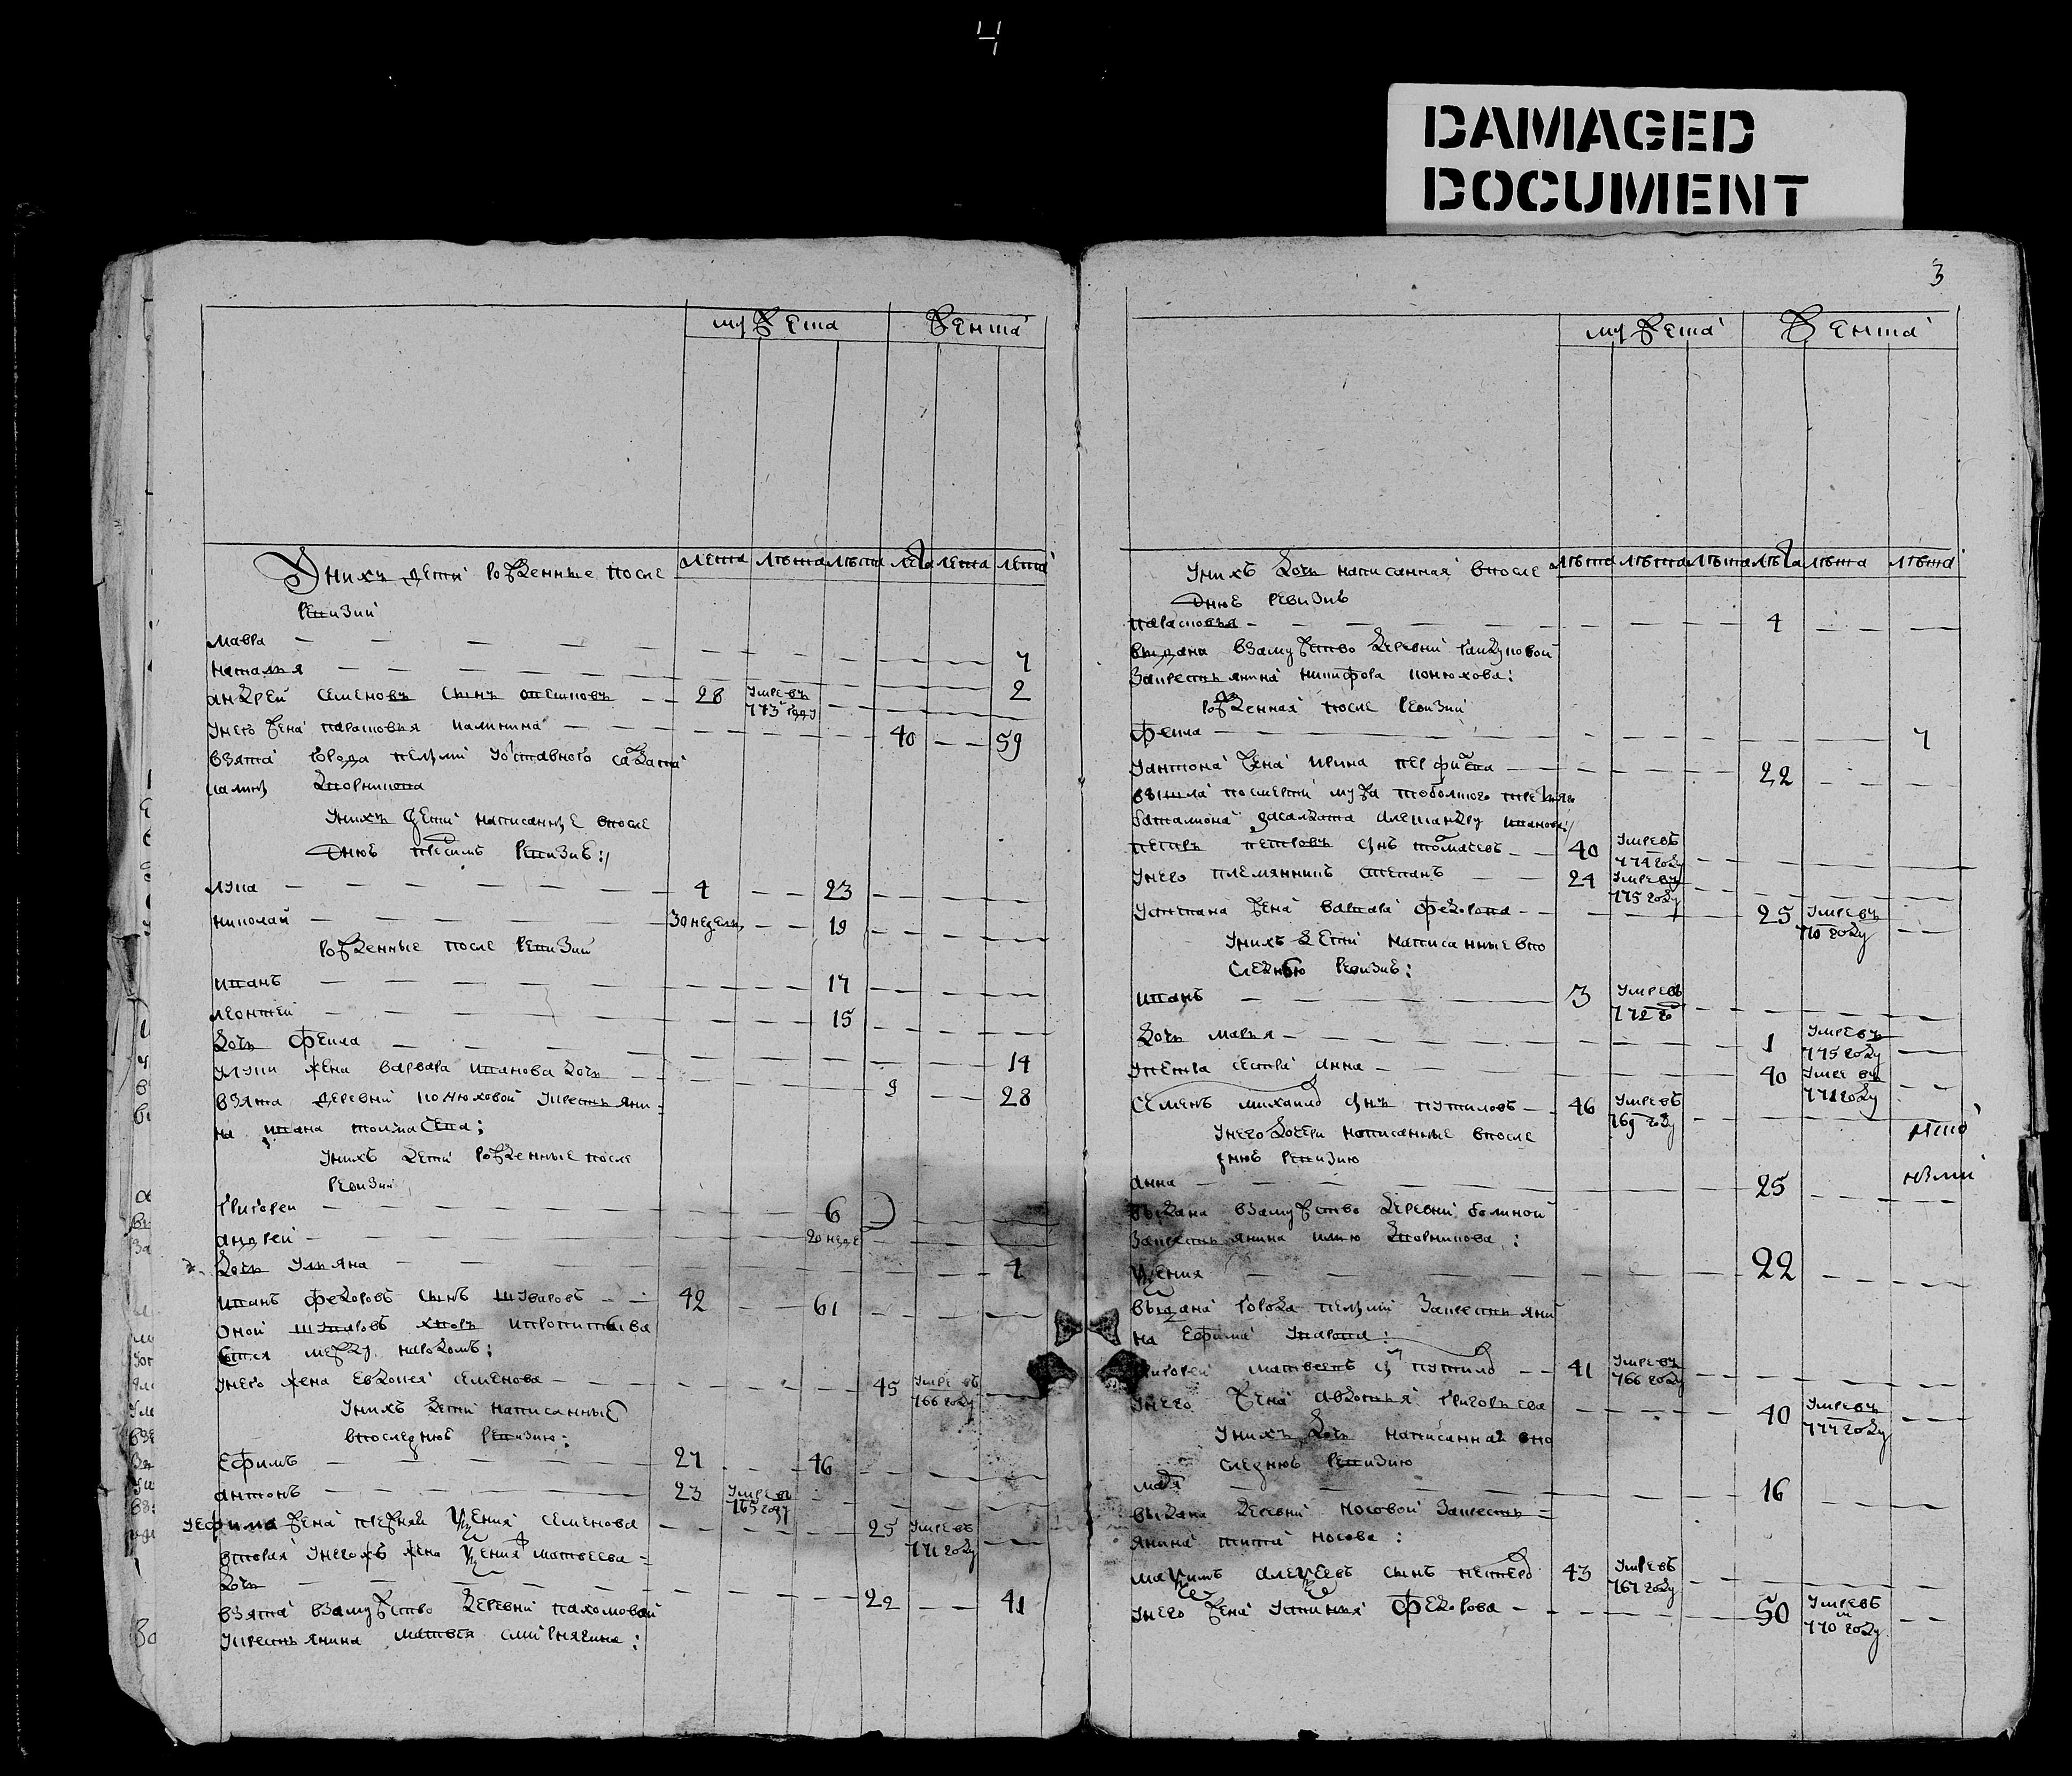 4
DAMAGED
DOCUMENT
мужеска женска
лета лѣта лѣта лета лета лета
У нихъ дети рожденные после
ревизии
мавра — 7
наталья — 2
андрей семеновъ сынъ — 28 умре въ 773 году
у него жена парасковья калинина — 40 — 59
взята города пелыми уоставного салдата
калины дворникова
у нихъ дети написанные в после
днюю пред симъ ревизию:/
лука — 4 — 23
николай — 30 недель — 19
рожденные после ревизии
иванъ — 17
леонтей — 15
дочь фекла — 14
у луки жена варвара иванова дочь — 9 — 28
взята деревни конюховой у крестьяни
на ивана толмачева:
у нихъ дети рожденные после
ревизии
григореи — 6
андреи — 20 неде
дочь ульяна — 4
иванъ федоровъ сынъ шуваровъ — 42 — 61
оной шуваровъ хворъ и пропитыва
ется между народомъ:
у него жена евдокея семенова — 45 умре въ 766 году
у нихъ дети написанные
в последнюю ревизию:
ефимъ — 27 — 46
антонъ — 23 умре въ 765 году
у ефима жена прежняя ксения семенова — 25 умре въ 771 году
вторая у него жъ жена ксения матвеева
дочь — 22 — 41
взята в замужство деревни пахомовой
у крестьянина матвея смирнягина:
3
мужеска женска
лѣта лѣта лѣта лѣта лѣта лѣта
у нихъ дочь написанная в после
днюю ревизию
парасковья — 4
выдана в замужство деревни
за крестьянина никифора конюхова:
рожденная после ревизии
фекла — 7
у антона жена ирина перфилева — 22
вышла по смерти мужа тобольского
баталиона за салдата александру иванова:/
петръ петровъ снъ толмачевъ — 40 умре въ 774 году
у него племянникъ степанъ — 24 умре въ 775 году
у степана жена варвара федорова — 25 умре въ 770 году
у нихъ дети написанные в по
следнюю ревизию:
иванъ — 3 умре въ 772 го
дочь марья — 1 умре въ 775 году
у петра сестра анна — 40 умре въ 771 году
семенъ михаило снъ путиловъ — 46 умре въ 769 году
у него дочери написанные в после
днюю ревизию
анна — 25
выдана в замужство деревни болиной
за крестьянина илью дворникова:
ксения — 22
выдана города пелыми за крестьяни
на ефима уварова:
григореи матвеевъ снъ путило — 41 умре въ 766 году
у него жена авдотья григорьева — 40 умре въ 777 году
у нихъ дочь написанная в по
следнюю ревизию
марья — 16
выдана деревни носовой за кресть
янина тита носова:
максимъ алексеевъ сынъ — 43 умре въ 767 году
у него жена устинья федорова — 50 умре въ 770 году